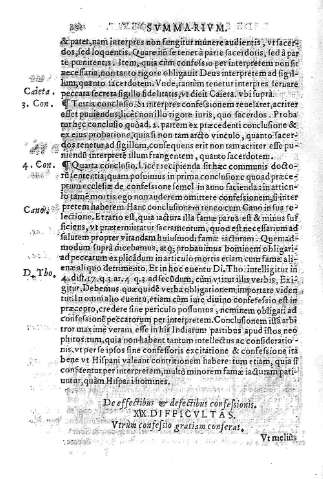 SVMMARIVM.
& patet, nam interpres non fungitur munere audientis, vt sacer-
dos, sed loquentis. Quare nō se tenet à parte sacerdotis, sed à par
te pœnitentis. Item, quia cùm confessio per interpretem non sit
necessaria, non tanto rigore obligauit Deus interpretem ad sigil-
lum, quanto sacerdotem. Vnde, tantùm tenetur interpres seruare
peccata secreta sigillo fidelitatis, vt dixit Caieta. vbi suprà.
Caieta.
3. Con.
¶ Tertia conclusio. Si interpres confessionem reuelaret, acriter
esset puniendus, licèt non illo rigore iuris, quo sacerdos. Proba
tur hęc conclusio quoad. 1. partem ex præcedenti conclusione &
ex eius probatione, quia si non tam arcto vinculo, quanto sacer-
dos tenetur ad sigillum, consequens erit non tam acriter esse pu-
niendū interprete sigillum frangentem, quanto sacerdotem.
4. Con.
¶ Quarta conclusio. Licèt recipienda sit hæc communis docto-
rū sententia, quam posuimus in prima conclusione quoad præce-
ptum ecclesiæ de confessione semel in anno facienda in articu-
lo tamē mortis ego non auderem omittere confessionem, si inter
pretem haberem. Hanc conclusionem tenet
Cano.
lectione. Et ratio est, quia iactura illa famæ parua est & minus suf
ficiens, vt prætermittatur sacramentum, quod est necessarium ad
salutem propter vitandam huiusmodi famæ iacturam. Quemad-
modum suprà dicebamus, atq; probauimus hominem obligari
ad peccatum explicādum in articulo mortis etiam cum fame ali-
ena aliquo detrimento. Et in hoc euentu Di. Tho. intelligitur in
D. Tho.
4. dist. 17. q. 3. ar. 7. q. 4. ad secūdum, cùm vtitur illis verbis, Exi-
gitur, Debemus quæ quidē verba obligationem importare viden
tur. In omni alio euentu, etiam cùm iure diuino confessio est in
præcepto, credere sine periculo possumus, neminem obligari ad
confessionē peccatorum per interpretem. Conclusionem istā arbi
tror maximè veram esse in his Indiarum partibus apud istos neo
phitos tum, quia non habent tantum intellectus ac consideratio-
nis, vt per se ipsos sine confessoris excitatione & confessione ita
bene vt Hispani valeant contritionem habere tum etiam, quia si
confitentur per interpretem, multò minorem famæ iacturam pati-
untur, quàm Hispani homines.
De effectibus & defectibus confessionis.
XIX. DIFFICVLTAS.
Vtrùm confessio gratiam conferat.
Vt meliùs